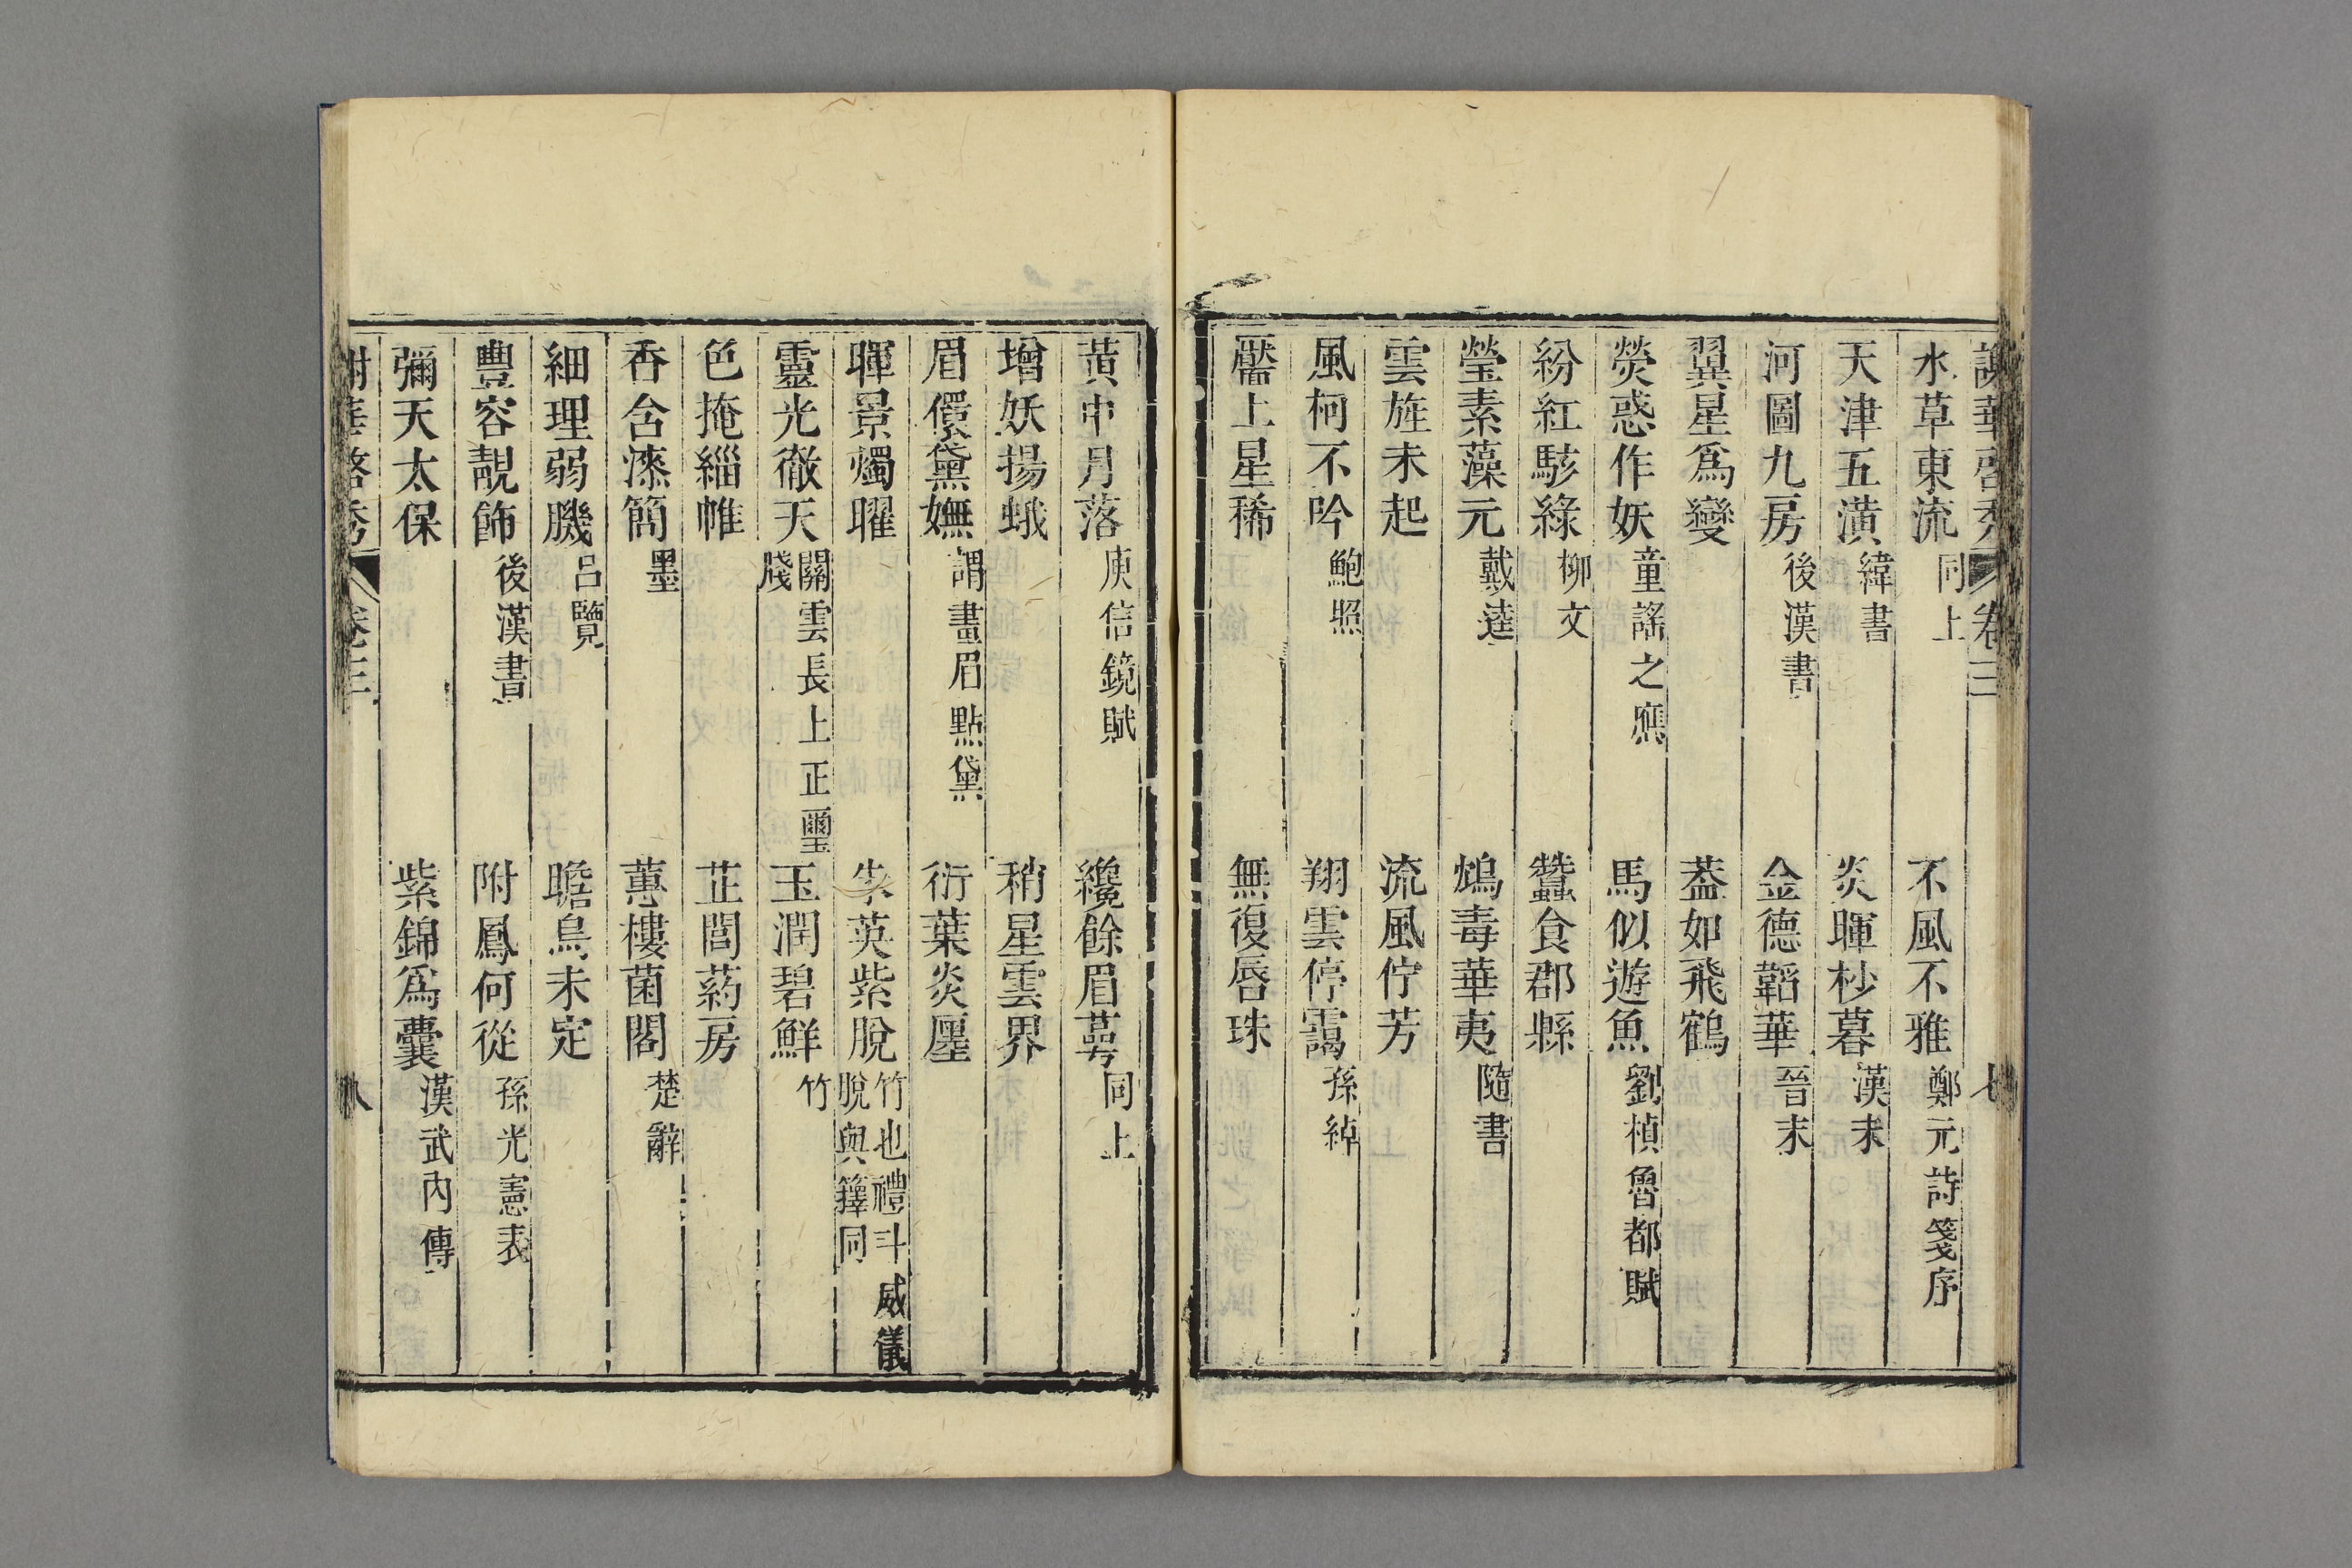 謝華啓秀 卷三 七
水草東流 同上 不風不雅 鄭元詩箋序
天津五潢 緯書 炎暉杪暮 漢末
河圖九房 後漢書 金德韜華 晉末
翼星爲變 葢如飛鶴
熒惑作妖 童謠之應 馬似遊魚 劉楨魯都賦
紛紅駭綠 柳文 蠶食郡縣
瑩素藻元 戴逵 鴆毒華夷 隨書
雲旌未起 流風佇芳
風柯不吟 鮑照 翔雲停靄 孫綽
靨上星稀 無復唇珠
黄中月落 庾信鏡賦 纔餘眉萼 同上
增妖揚蛾 稍星雲界
眉儇黛嫵 謂畫眉點黛 衍葉炎廛
暉景燭曜 朱英紫脫 竹也禮斗威儀脫與籜同
靈光徹天 關雲長上正璽牋 玉潤碧鮮 竹
色掩緇帷 芷閭葯房
香含漆簡 墨 蕙樓菌閣 楚辭
細理弱膩 呂覽 瞻烏未定
豐容靚飾 後漢書 附鳳何從 孫光憲表
彌天太保 紫錦爲囊 漢武內傳
謝華啓秀 卷三 八